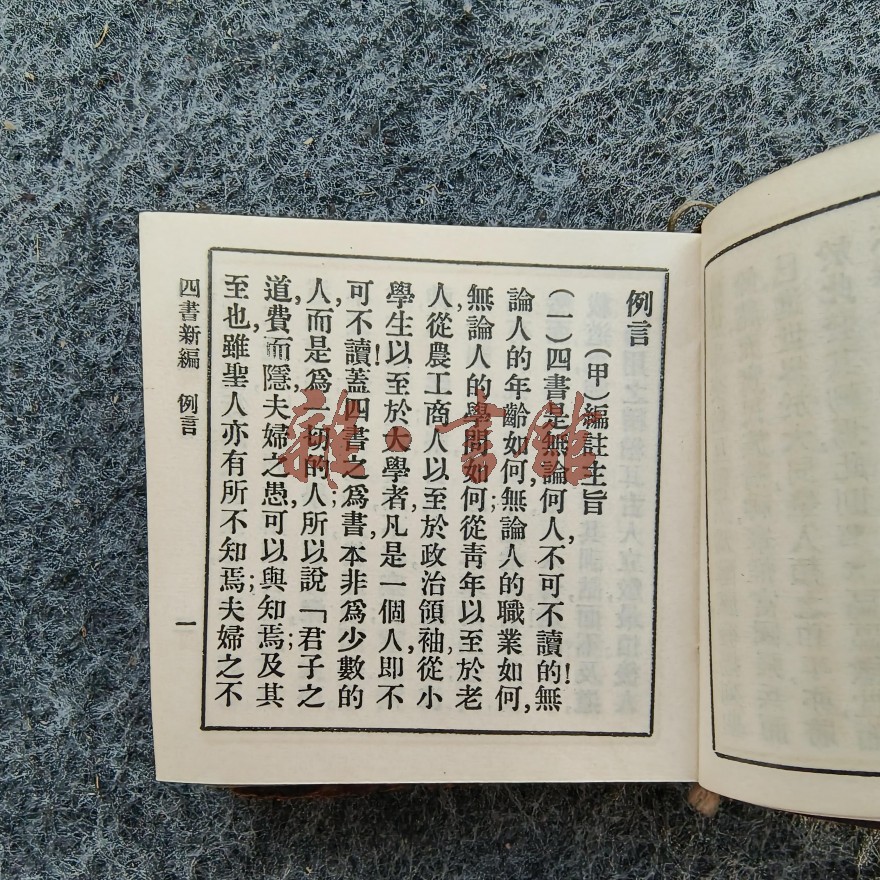 例言
（甲）編註主旨
（一）四書是無論何人不可不讀的！無
論人的年齡如何，無論人的職業如何，
無論人的學問如何；從靑年以至於老
人，從農工商人以至於政治領袖，從小
學生以至於大學者，凡是一個人，即不
可不讀！蓋四書之爲書，本非爲少數的
人，而是爲一切的人；所以說「君子之
道，費而隱，夫婦之愚，可以與知焉；及其
至也，雖聖人亦有所不知焉；夫婦之不
四書新編　例言
一
雜·書館